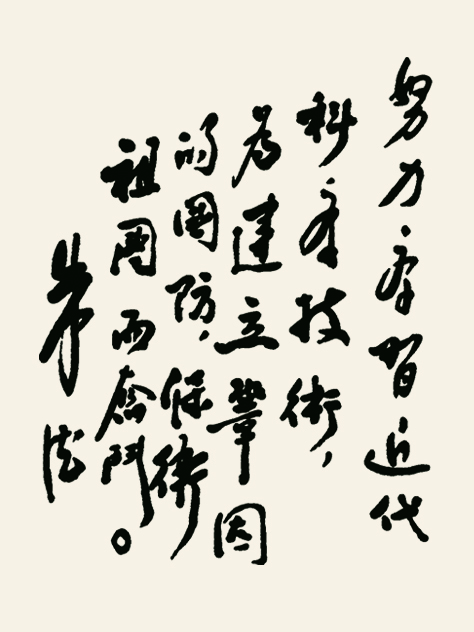 努力学習近代
科学技術，
为建立鞏固
的國防，保衛
祖國而奮鬥。
朱德